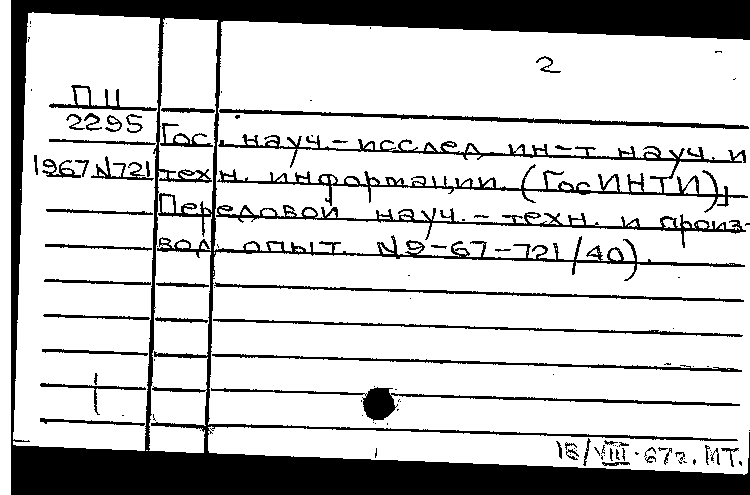 2
П 11
2295
Гос. науч.-исслед. ин-т науч. и
1967 N721
техн. информации. (ГосИНТИ);
Передовой науч.-техн. и произ-
вод. опыт. N9-67-721/40).
18/VIII-67г. МТ.